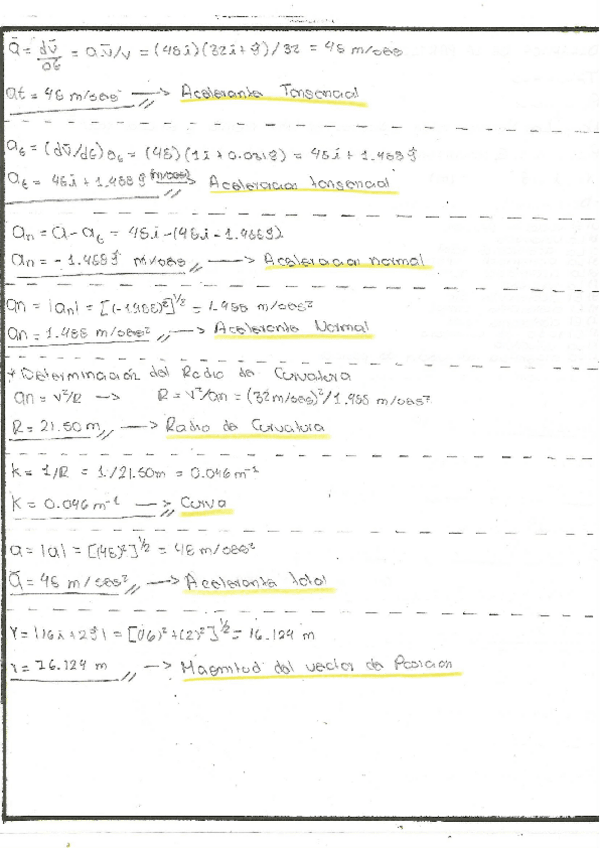 ā = dv̄/dt = a.v̄/v = (48i)(32i+j)/32 = 48 m/seg
at = 48 m/seg² → Acelerante Tangencial
at = (dv̄/dt)θt = (48)(1i+0.031j) = 48i + 1.488j
at = 48i + 1.488j (m/seg²) → Aceleracion tangencial
an = a - at = 48i - (48i - 1.488j)
an = -1.488j m/seg → Aceleracion normal
an = |an| = [(-1.488)²]^½ = 1.488 m/seg²
an = 1.488 m/seg² → Acelerante Normal
* Determinación del Radio de Curvatura
an = v²/R → R = v²/an = (32m/seg)²/1.488 m/seg²
R = 21.50 m → Radio de Curvatura
k = 1/R = 1./21.50m = 0.046 m⁻¹
K = 0.046 m⁻¹ → Curva
a = |a| = [(48)²]^½ = 48 m/seg²
ā = 48 m/seg² → Acelerante total
r = |16i+2j| = [(16)²+(2)²]^½ = 16.124 m
r = 16.124 m → Magnitud del vector de Posicion